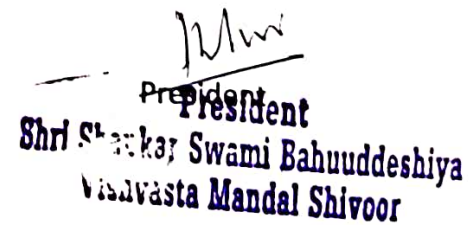 President
President
Shri Shankar Swami Bahuuddeshiya
Vishvasta Mandal Shivoor